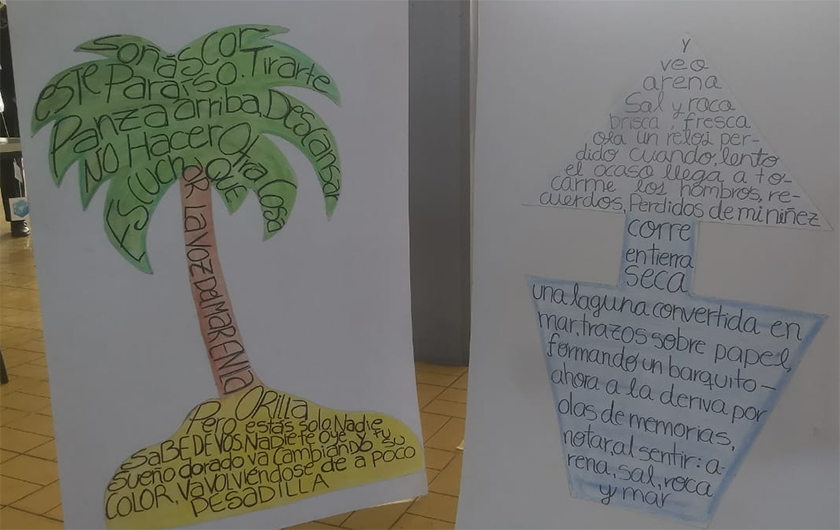 Soñás con
este Paraíso. Tirarte
Panza arriba, Descansar
NO Hacer Otra Cosa
QUE
EsCUCHaR LA VOZ Del MAR EN LA
ORILLA
Pero estás solo. Nadie
SaBE DE VOS. Nadie te oye y tu
sueño dorado va Cambiando su
COLOR, Va volviéndose de a poco
PESADILLA
y
veo
arena
Sal y roca
brisca, fresca
ola un reloj per-
dido cuando, lento
el ocaso llega a to-
carme los hombros, re-
cuerdos, Perdidos de mi niñez
corre
en tierra
seca
una laguna convertida en
mar, trazos sobre papel,
formando un barquito-
ahora a la deriva por
olas de memorias,
notar, al sentir: a-
rena, sal, roca
y mar